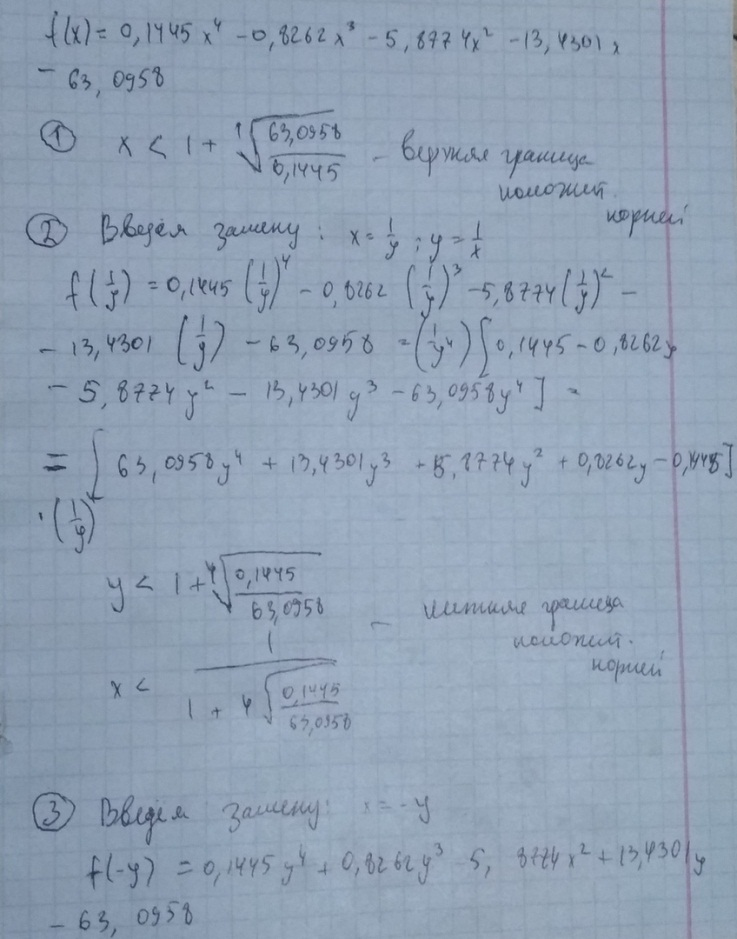 f(x) = 0,1445 x⁴ - 0,8262x³ - 5,8774x² - 13,4301x
- 63,0958
① x < 1 + ¹√(63,0958/0,1445) - верхняя граница
полож​ит.
корней
② Введём замену: x = 1/y ; y = 1/x
f(1/y) = 0,1445 (1/y)⁴ - 0,8262 (1/y)³ - 5,8774 (1/y)² -
- 13,4301 (1/y) - 63,0958 = (1/y⁴) [0,1445 - 0,8262y
- 5,8774y² - 13,4301y³ - 63,0958y⁴] =
= [63,0958y⁴ + 13,4301y³ + 5,8774y² + 0,8262y - 0,1445]
· (1/y)⁴
y < 1 + ⁴√(0,1445/63,0958)
- нижняя граница
полож​ит.
корней
x < 1/(1 + ⁴√(0,1445/63,0958))
③ Введём замену: x = -y
f(-y) = 0,1445y⁴ + 0,8262y³ - 5,8774x² + 13,4301y
- 63,0958